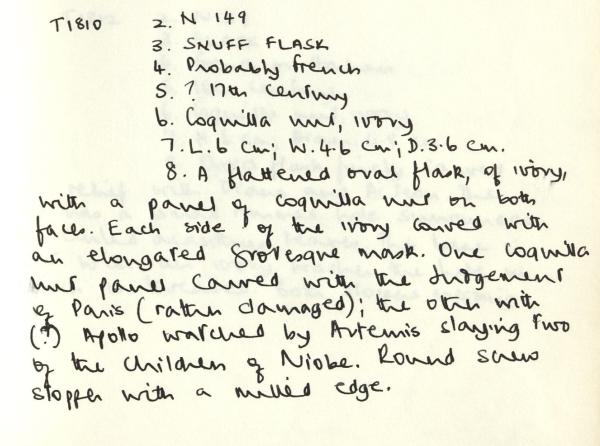 T1810 2. N 149
3. SNUFF FLASK
4. Probably French
5. ? 17th Century
6. Coquilla nut, ivory
7. L. 6 cm; W. 4.6 cm; D. 3.6 cm.
8. A flattened oval flask, of ivory,
with a panel of coquilla nut on both
faces. Each side of the ivory carved with
an elongated grotesque mask. One coquilla
nut panel carved with the Judgement
of Paris (rather damaged); the other with
(?) Apollo watched by Artemis slaying two
of the children of Niobe. Round screw
stopper with a milled edge.